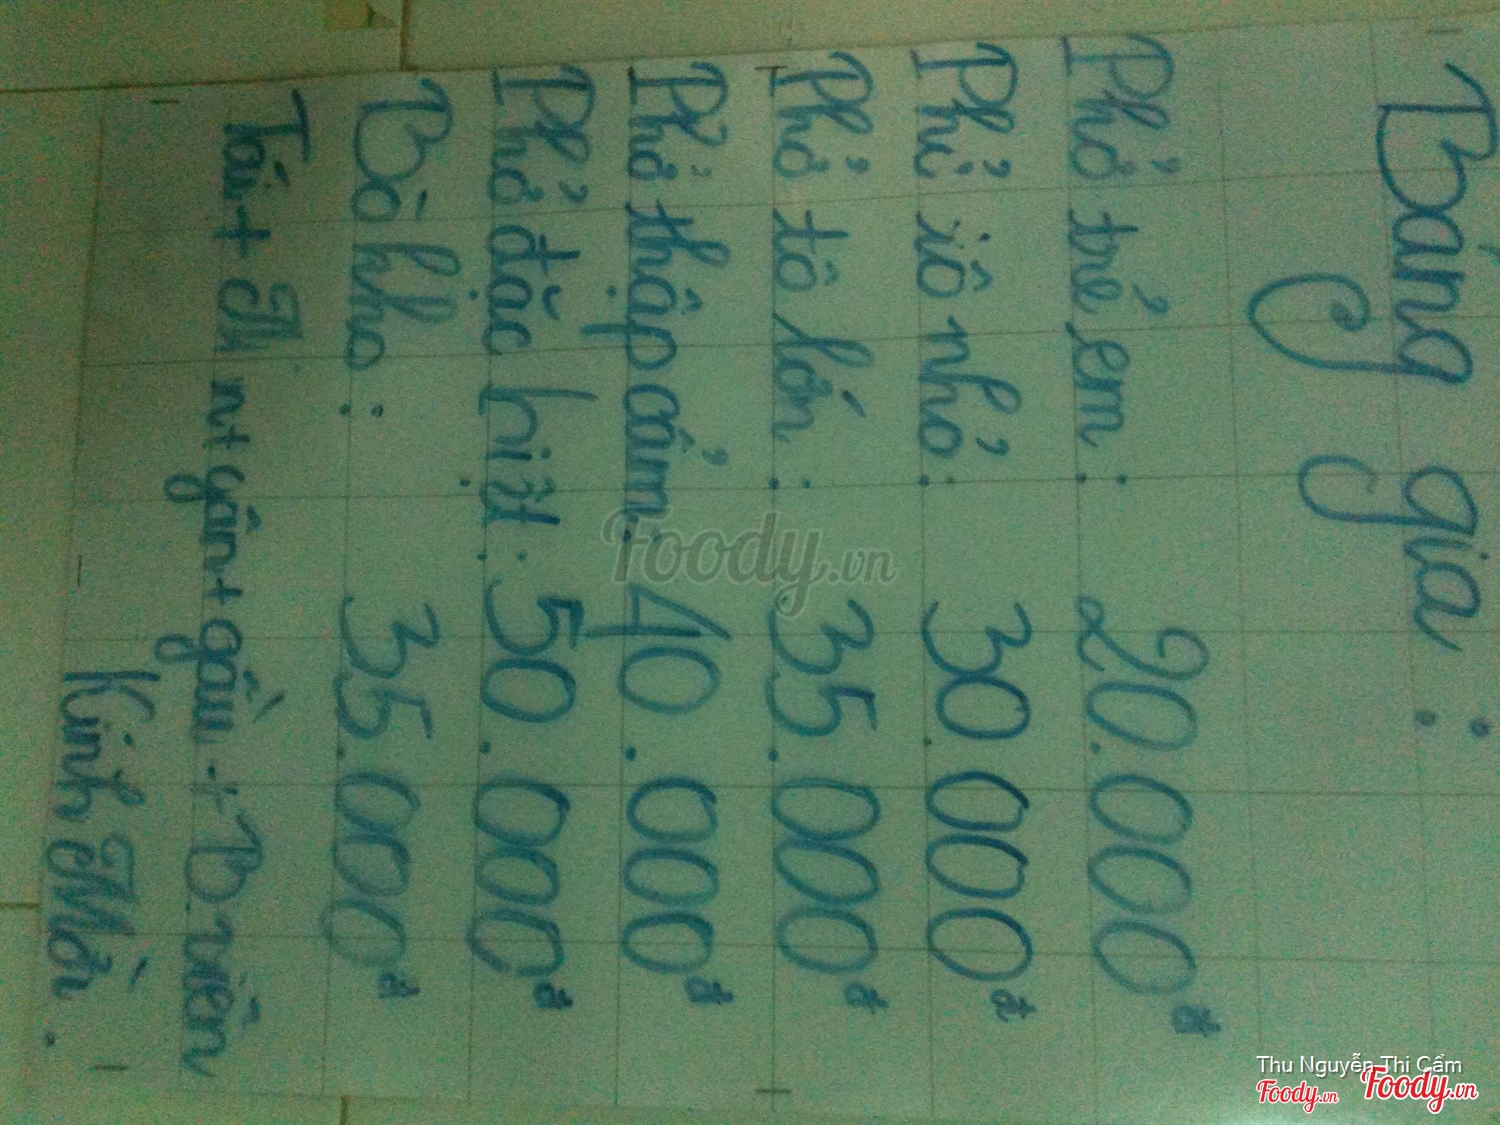 Bảng giá:
Phở trẻ em: 20.000đ
Phở tô nhỏ: 30.000đ
Phở tô lớn: 35.000đ
Phở thập cẩm: 40.000đ
Phở đặc biệt: 50.000đ
Bò kho: 35.000đ
Tái + nạm + gân + gầu + B viên
Kính Mời.
Foody.vn
Thu Nguyễn Thi Cẩm
Foody.vn
Foody.vn